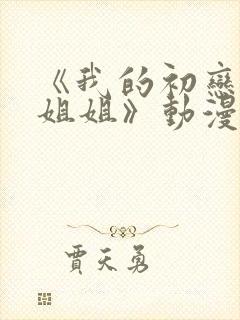 《我的初戀
姐姐》動漫
賈天勇